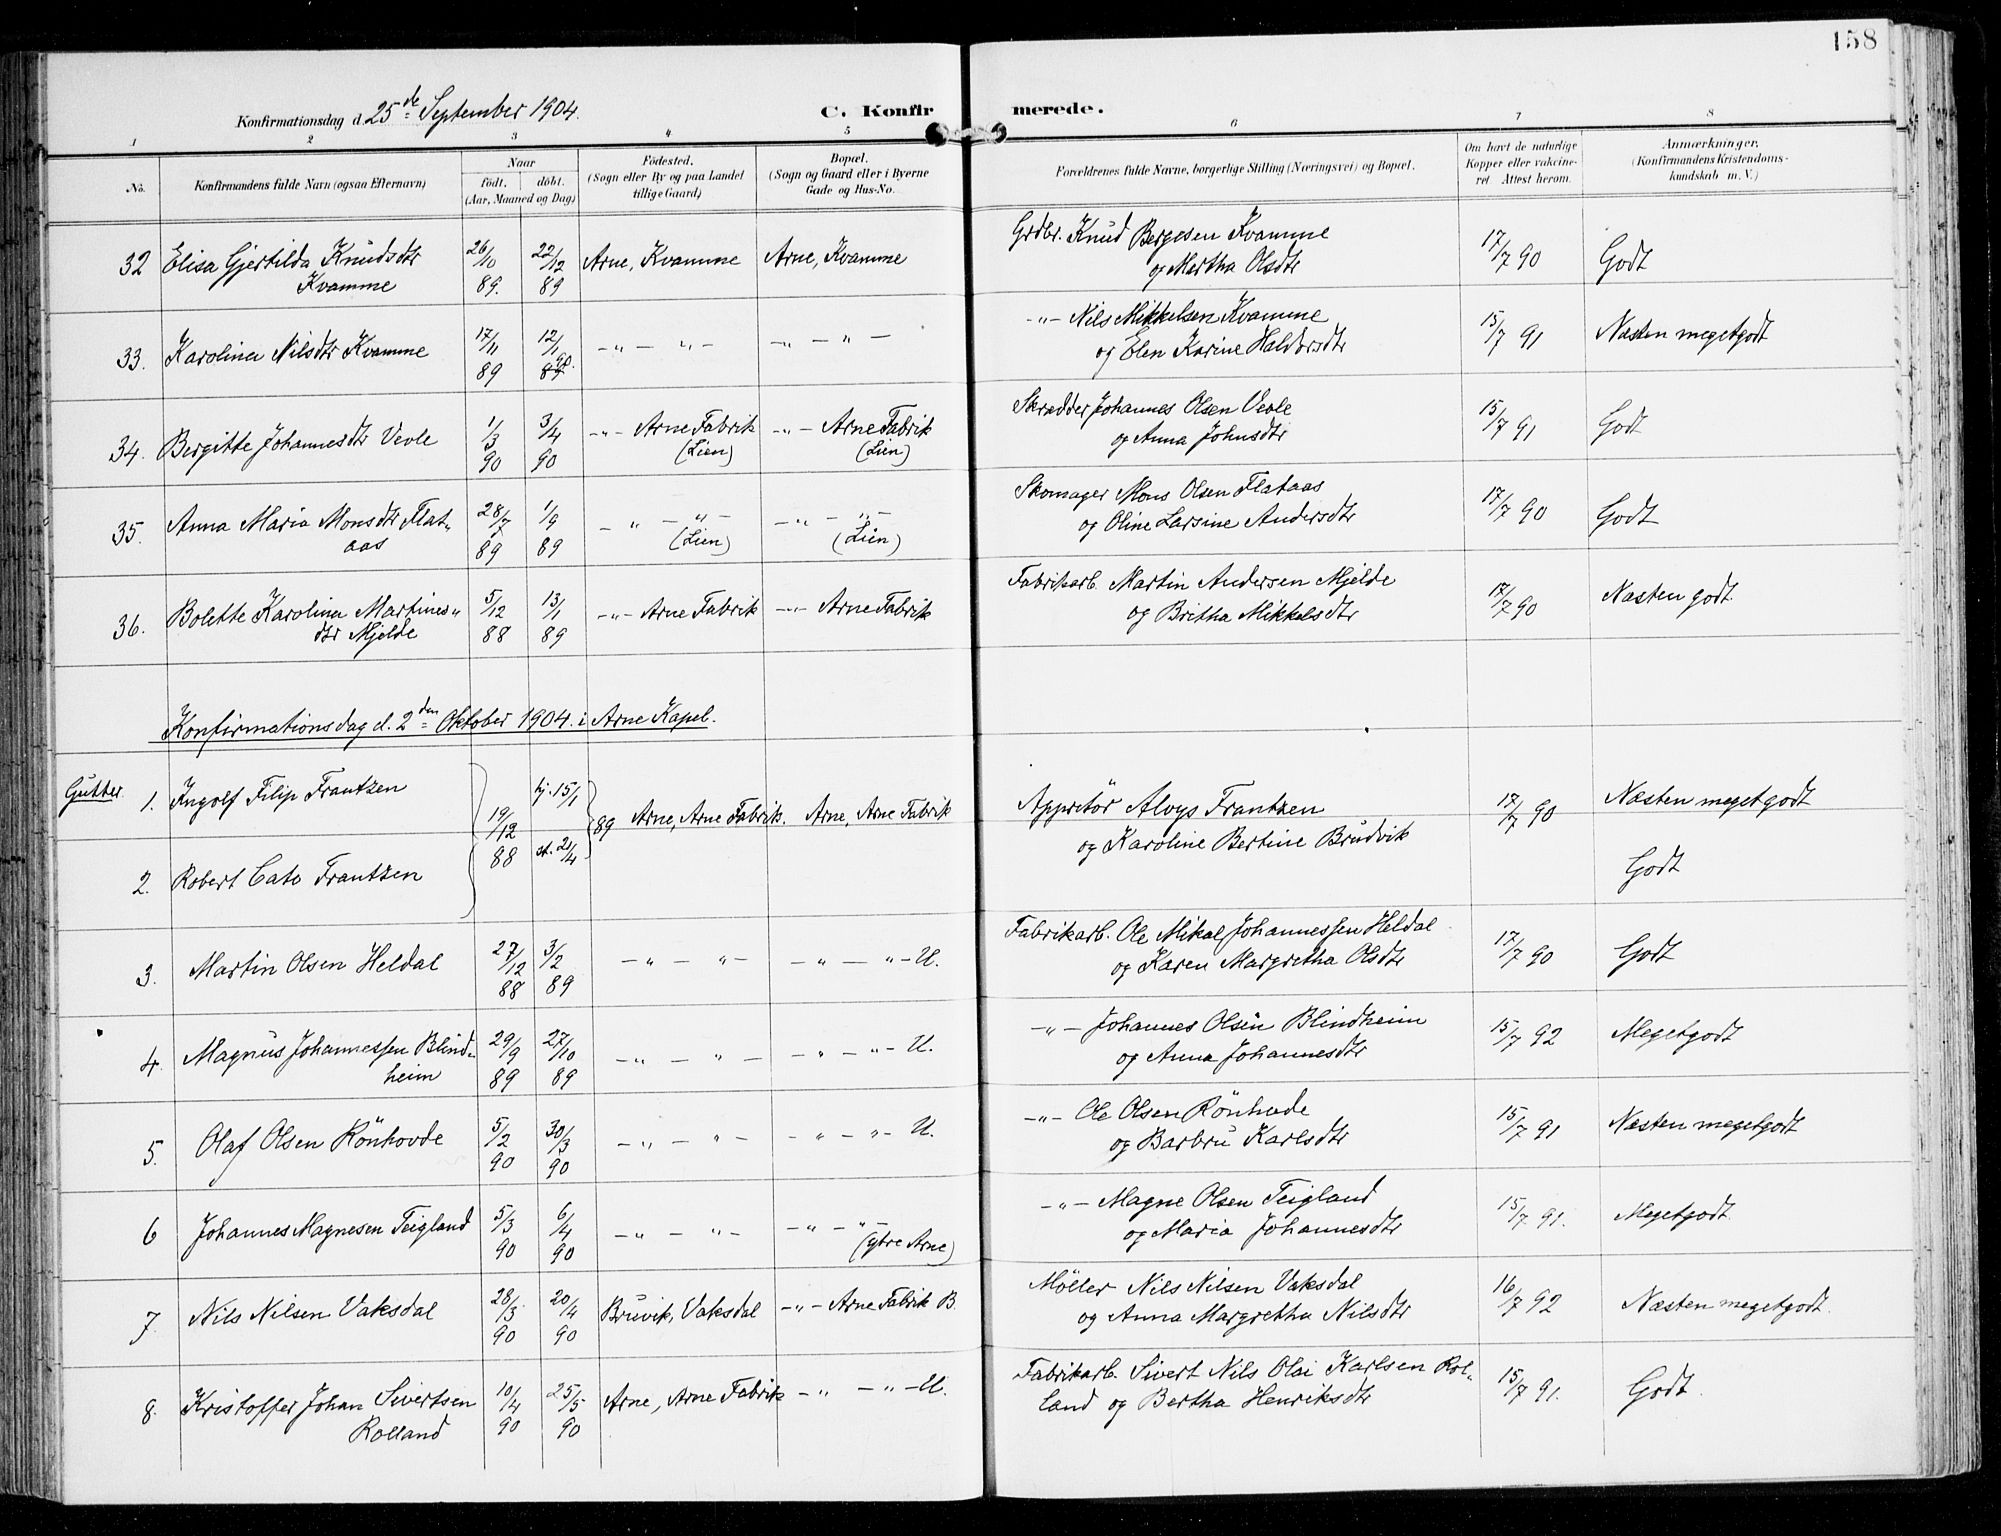 158
Konfirmationsdag d. 25de September 1904.
C. Konfirmerede.
1 2 3 4 5 6 7 8
No.
Konfirmandens fulde Navn (ogsaa Efternavn)
Naar
födt. döbt.
(Aar, Maaned og Dag)
Födested.
(Sogn eller By og paa Landet
tillige Gaard)
Bopæl.
(Sogn og Gaard eller i Byerne
Gade og Hus-No.
Forældrenes fulde Navne, borgerlige Stilling (Næringsvei) og Bopæl.
Om havt de naturlige
Kopper eller vakcine-
ret. Attest herom.
Anmærkninger.
(Konfirmandens Kristendoms-
kundskab m. V.)
32 Elisa Gjertilda Knudsdtr 26/10 89. 22/12 89 Arne, Kvamme Arne, Kvamme Grdbr. Knud Bergesen Kvamme 17/7 90 Godt
Kvamme og Martha Olsdtr
33. Karolina Nilsdtr Kvamme 17/11 89 12/1 89 90. -"- "- -"- "- -"- Nils Mikkelsen Kvamme 15/7 91 Næsten megetgodt
og Elen Karine Haldorsdtr
34. Bergitte Johannesdtr Vevle 1/3 90 3/4 90 -"- Arne Fabrik -"- Arne Fabrik Skrædder Johannes Olsen Vevle 15/7 91 Godt
(Lien) (Lien) og Anna Johnsdtr
35. Anna Maria Monsdtr Flat- 28/7 89 1/9 89 -"- "- -"- "- Skomager Mons Olsen Flataas 17/7 90 Godt
aas (Lien) (Lien) og Oline Larsine Andersdtr
36. Bolette Karolina Martines- 5/12 88 13/1 89 -"- Arne Fabrik -"- Arne Fabrik Fabrikarb. Martin Andersen Mjelde 17/7 90 Næsten godt.
dtr Mjelde og Britha Mikkelsdtr
Konfirmationsdag d. 2den Oktober 1904. i Arne Kapel.
Gutter 1. Ingolf Filip Frantzen 19/12 88 hj. 15/1 st. 21/4 89 Arne, Arne Fabrik. Arne, Arne Fabrik Appretör Aloys Frantzen 17/7 90 Næsten megetgodt
og Karoline Bertine Brudvik
2. Robert Cato Frantzen Godt
3. Martin Olsen Heldal 27/12 88 3/2 89 -"- "- -"- "- U. Fabrikarb. Ole Mikal Johannessen Heldal 17/7 90 Godt
og Karen Margretha Olsdtr
4. Magnus Johannessen Blind- 29/9 89 27/10 89 -"- "- -"- "- U. -"- Johannes Olsen Blindheim 15/7 92 Megetgodt
heim og Anna Johannesdtr
5. Olaf Olsen Rönhovde 5/2 90 30/3 90 -"- "- -"- "- U. -"- Ole Olsen Rönhovde 15/7 91 Næsten megetgodt
og Barbru Karlsdtr
6 Johannes Magnesen Teigland 5/3 90 6/4 90 -"- "- -"- "- -"- Magne Olsen Teigland 15/7 91. Megetgodt.
(ytre Arne) og Maria Johannesdtr
7. Nils Nilsen Vaksdal 28/3 90 20/4 90 Bruvik, Vaksdal -"- Arne Fabrik B. Möller Nils Nilsen Vaksdal 16/7 92 Næsten megetgodt.
og Anna Margretha Nilsdtr
8. Kristoffer Johan Sivertsen 10/4 90 25/5 90 Arne, Arne Fabrik -"- "- U. Fabrikarb. Sivert Nils Olai Karlsen Rol- 15/7 91. Godt.
Rolland land og Bertha Henriksdtr